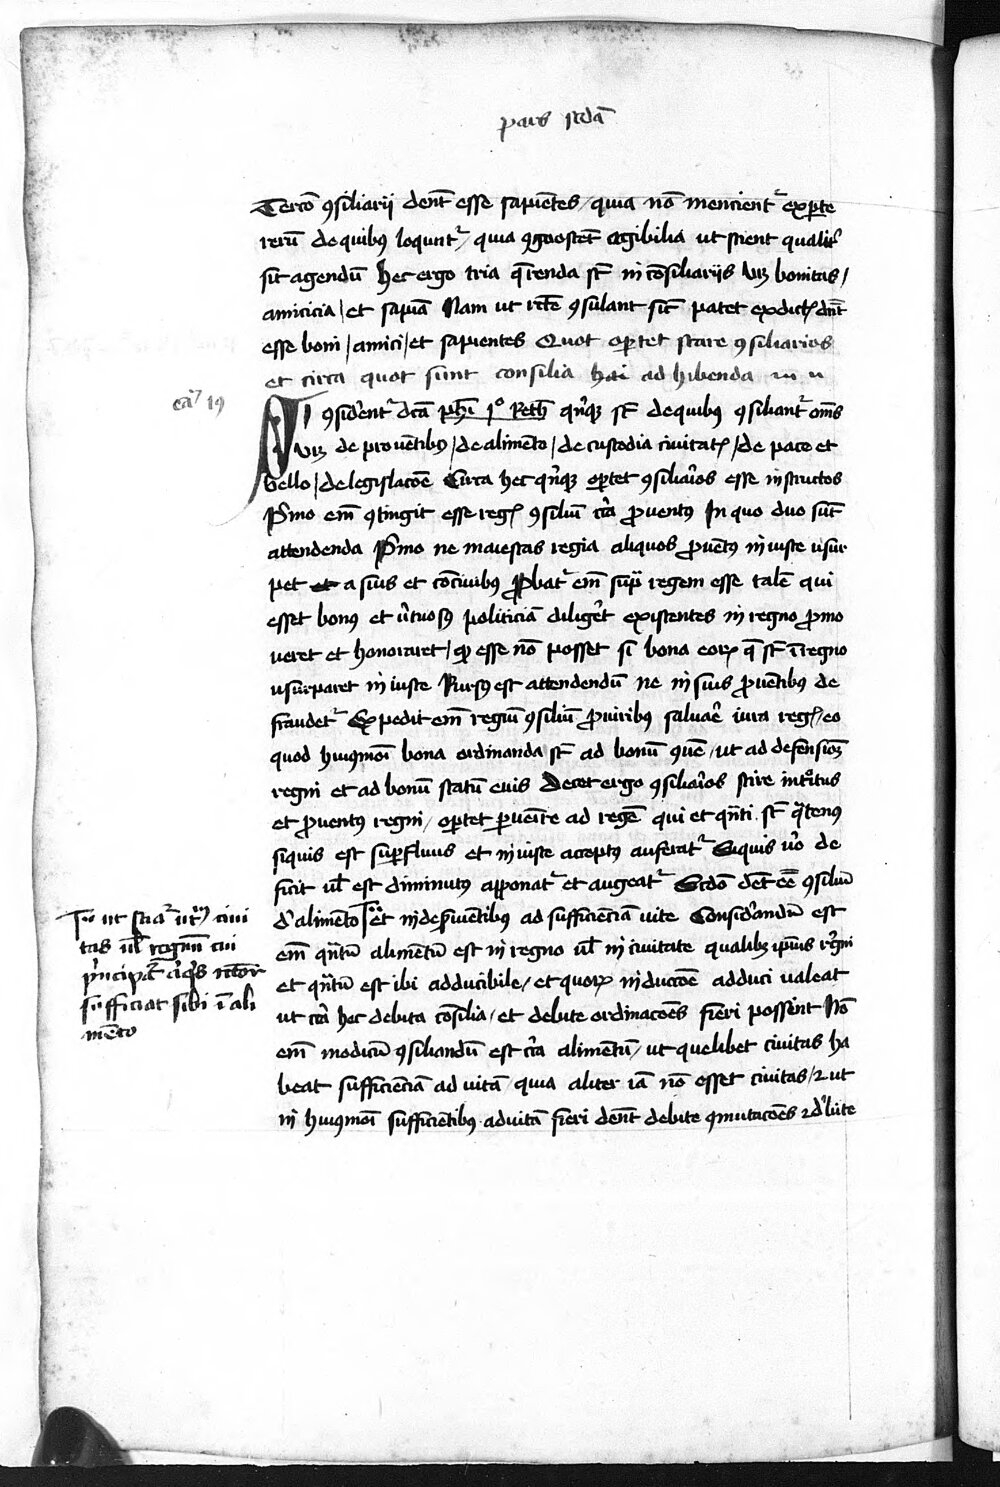 pars scda
Tercō ꝯsiliarij dēnt esse sapiētes / quia nō mencient' exp̄te
rerū de quibus loqunt' / quia ꝯgnoscēt agibilia ut scient qualit'
sit agendū Hec ergo tria q̄renda st̄ in cōsiliarijs vꝫ bonitas /
amicicia / et sapiā Nam ut rcē ꝯsulant sic̄ patet ex dict' dnt̄
esse boni / amici / et sapientes Quot op̄tet scire ꝯsiliarios
et circa quot sunt consilia ad hibenda
ca' 19
SI ꝯsident' dc̄a ph̄i 1° Reth̄ qnꝫ st̄ de quibus ꝯsiliant' om̄s
vꝫ de prouētibus / de alimēto / de custodia ciuitat' / de pace et
bello / de legislacōe Circa hec qnꝫ op̄tet ꝯsiliarios esse instructos
Pmo em̄ ꝯtingit esse reg' ꝯsiliū c̄ca ꝓuentus In quo duo sūt
attendenda Pmo ne maiestas regia aliquos ꝓuēt' iniuste usur
pet a suis et conciuibus Pbat' em̄ sup̄ regem esse talē qui
esset bonus et u'tuosus politiciā diligēt existentes in regno ꝓmo
ueret et honoraret / qd esse nō posset si bona eorꝝ q̄ st̄ ī regno
usurparet iniuste Rursus est attendendū ne in suis ꝓuētibus de
fraudet' Expedit em̄ regiū ꝯsiliū ꝓ uiribus saluare iura reg' / eo
quod huiusmōi bona ordinanda st̄ ad bonū ꝯune / ut ad defensionē
regni et ad bonū statū eius Decet ergo ꝯsiliarios scire introitus
et ꝓuentus regni / op̄tet puenire ad regē qui et qnti st̄ qtenus
siquis est supfluus et iniuste acceptus auferat' Siquis uo de
ficit ul est diminutus apponat' et augeat' Scdo det eē ꝯsiliū
d' alimēto et in deseruientibus ad sufficiēciā uite Considerandū est
em̄ qntū alimētū est in regno ul in ciuitate qualibꝫ ipsius regni
et qntū est ibi adducibile / et quorꝝ inductōe adduci ualeat
ut c̄ca hec debita cōsilia / et debite ordinacōes fieri possent Nō
em̄ modicū ꝯsiliandū est c̄ca alimētū / ut quelibet ciuitas ha
beat sufficiēciā ad uitā / quia aliter iā nō esset ciuitas / ⁊ ut
in huiusmōi sufficiētibus ad uitā fieri dent debite ꝯmutacōes ⁊ d'bite
ut sciat' utrū ciui
tas ul regnū cui
principat'
sufficiat sibi ī ali
mēto